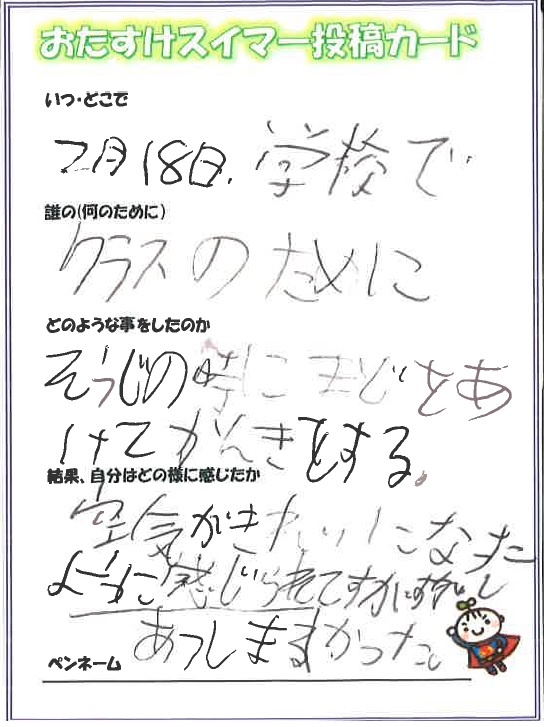 おたすけスイマー投稿カード
いつ・どこで
2月18日、学校で
誰の(何のために)
クラスのために
どのような事をしたのか
そうじの時にまどをあ
けてかんきをする。
結果、自分はどの様に感じたか
空気がきれいになった
ように感じられて
かった。
ペンネーム